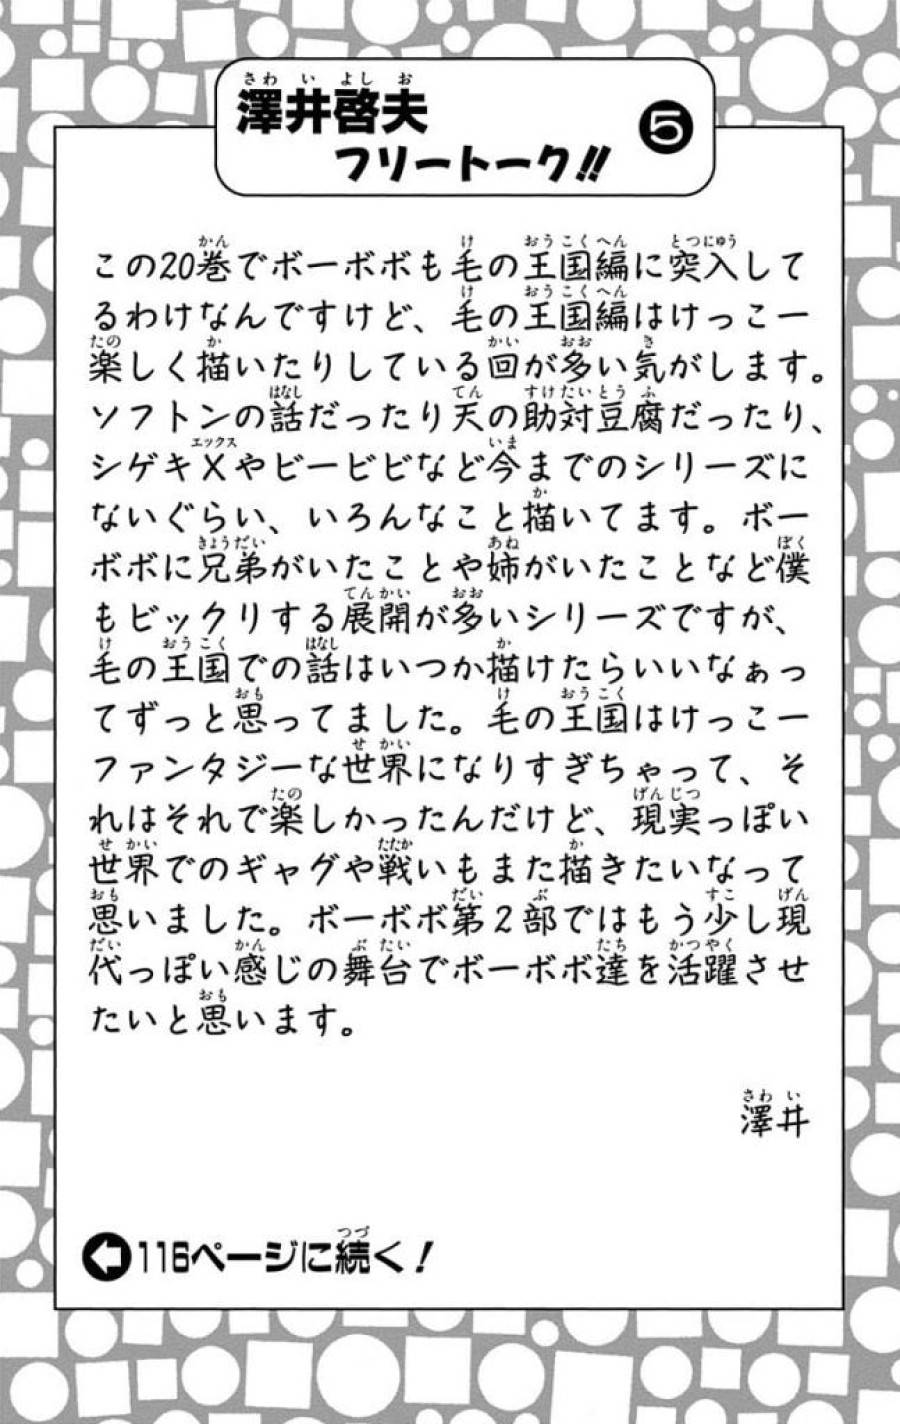 澤井啓夫
フリートーク!!
5
この20巻でボーボボも毛の王国編に突入して
るわけなんですけど、毛の王国編はけっこー
楽しく描いたりしている回が多い気がします。
ソフトンの話だったり天の助対豆腐だったり、
シゲキXやビービビなど今までのシリーズに
ないぐらい、いろんなこと描いてます。ボー
ボボに兄弟がいたことや姉がいたことなど僕
もビックリする展開が多いシリーズですが、
毛の王国での話はいつか描けたらいいなぁっ
てずっと思ってました。毛の王国はけっこー
ファンタジーな世界になりすぎちゃって、そ
れはそれで楽しかったんだけど、現実っぽい
世界でのギャグや戦いもまた描きたいなって
思いました。ボーボボ第2部ではもう少し現
代っぽい感じの舞台でボーボボ達を活躍させ
たいと思います。
澤井
116ページに続く!